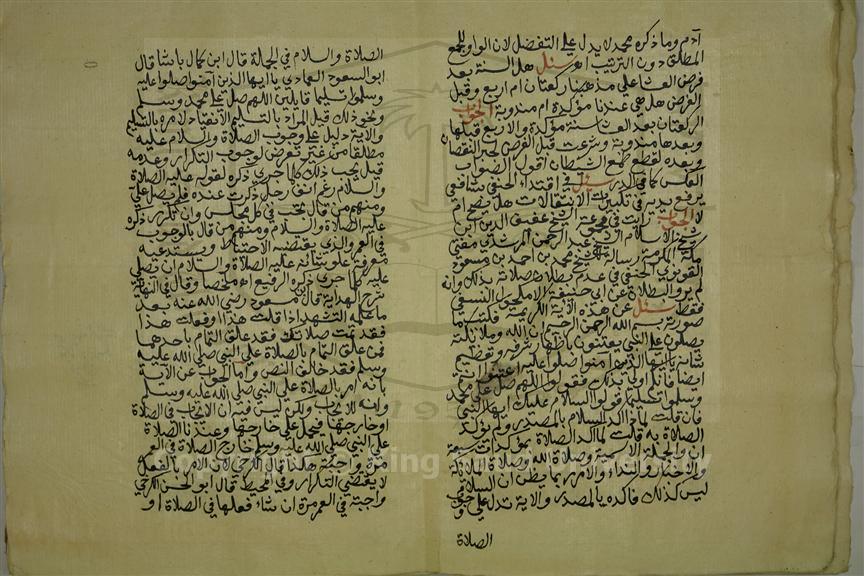 آدم وما ذكره محمد لا يدل على التفضل لان الواو للجمع
المطلق دون الترتيب اه سئل هل السنة بعد
فرض العشا على مذهبنا ركعتان ام اربع وقبل
الفرض هل هي عندنا مؤكدة ام مندوبة الجواب
الركعتان بعد العشا سنة مؤكدة والاربع قبلها
وبعدها مندوبة وشرعت قبل الفرض لجبر النقصان
وبعده لقطع طمع الشيطان اقول الصواب
العكس كما في الدر سئل في اقتداء الحنفي بشافعي
يرفع يديه في تكبيرات الانتقالات هل يصح ام
لا الجواب رايت في مجموعة الشيخ عفيف الدين ابن
شيخ الاسلام الشيخ عبد الرحمن المرشدي مفتي
مكة المكرمة رسالة للشيخ محمد بن احمد بن مسعود
القونوي الحنفي في عدم بطلان صلاته بذلك وانه
لم يرو البطلان عن ابي حنيفة الا مكحول النسفي
فقط سئل عن هذه الآية الكريمة فكتب ما
صورته بسم الله الرحمن الرحيم ان الله وملائكته
يصلون على النبي يعتنون باظهار شرفه وتعظيم
شانه يا ايها الذين آمنوا صلوا عليه اعتنوا انتم
ايضا فانكم اولى بذلك فقولوا اللهم صل على محمد
وسلموا تسليما قولوا السلام عليك ايها النبي
فان قلت لم اكد السلام بالمصدر ولم يؤكد
الصلاة به قلت لما اكد الصلاة بمؤكدات سبعة
ان والجملة الاسمية وصلاة الله وصلاة الملائكة
والاخبار والنداء والامر ربما يظن ان السلام
ليس كذلك فاكده بالمصدر والآية تدل على وجوب
الصلاة
الصلاة والسلام في الجملة قال ابن كمال باشا قال
ابو السعود العمادي يا ايها الذين آمنوا صلوا عليه
وسلموا تسليما قايلين اللهم صل على محمد وسلم
ونحو ذلك قيل المراد بالتسليم الانقياد لامره بالتسليم
والآية دليل على وجوب الصلاة والسلام عليه
مطلقا من غير تعرض لوجوب التكرار وعدمه
قيل يجب ذلك كلما جرى ذكره لقوله عليه الصلاة
والسلام رغم انف رجل ذكرت عنده فلم يصل علي
ومنهم من قال يجب في كل مجلس وان تكرر ذكره
عليه الصلاة والسلام ومنهم من قال بالوجوب
في العمر والذي يقتضيه الاحتياط ويستدعيه
معرفة علو شانه عليه الصلاة والسلام ان يصلى
عليه كلما جرى ذكره الرفيع اه ملخصا وقال في النهاية
شرح الهداية قال ابن مسعود رضي الله عنه بعد
ما علمه التشهد اذا قلت هذا او فعلت هذا
فقد تمت صلاتك فقد علق التمام باحدهما
فمن علق التمام بالصلاة على النبي صلى الله عليه
وسلم فقد خالف النص واما الجواب عن الآية
بانه امر بالصلاة على النبي صلى الله عليه وسلم
وانه للايجاب ولكن ليس فيه ان الايجاب في الصلاة
او خارجها فيحمل على خارجها وعندنا الصلاة
على النبي صلى الله عليه وسلم خارج الصلاة في العمر
مرة واجبة هكذا قال الكرخي لان الامر بالفعل
لا يقتضي التكرار وفي المحيط قال ابو الحسن الكرخي
واجبة في العمر مرة ان شاء فعلها في الصلاة او